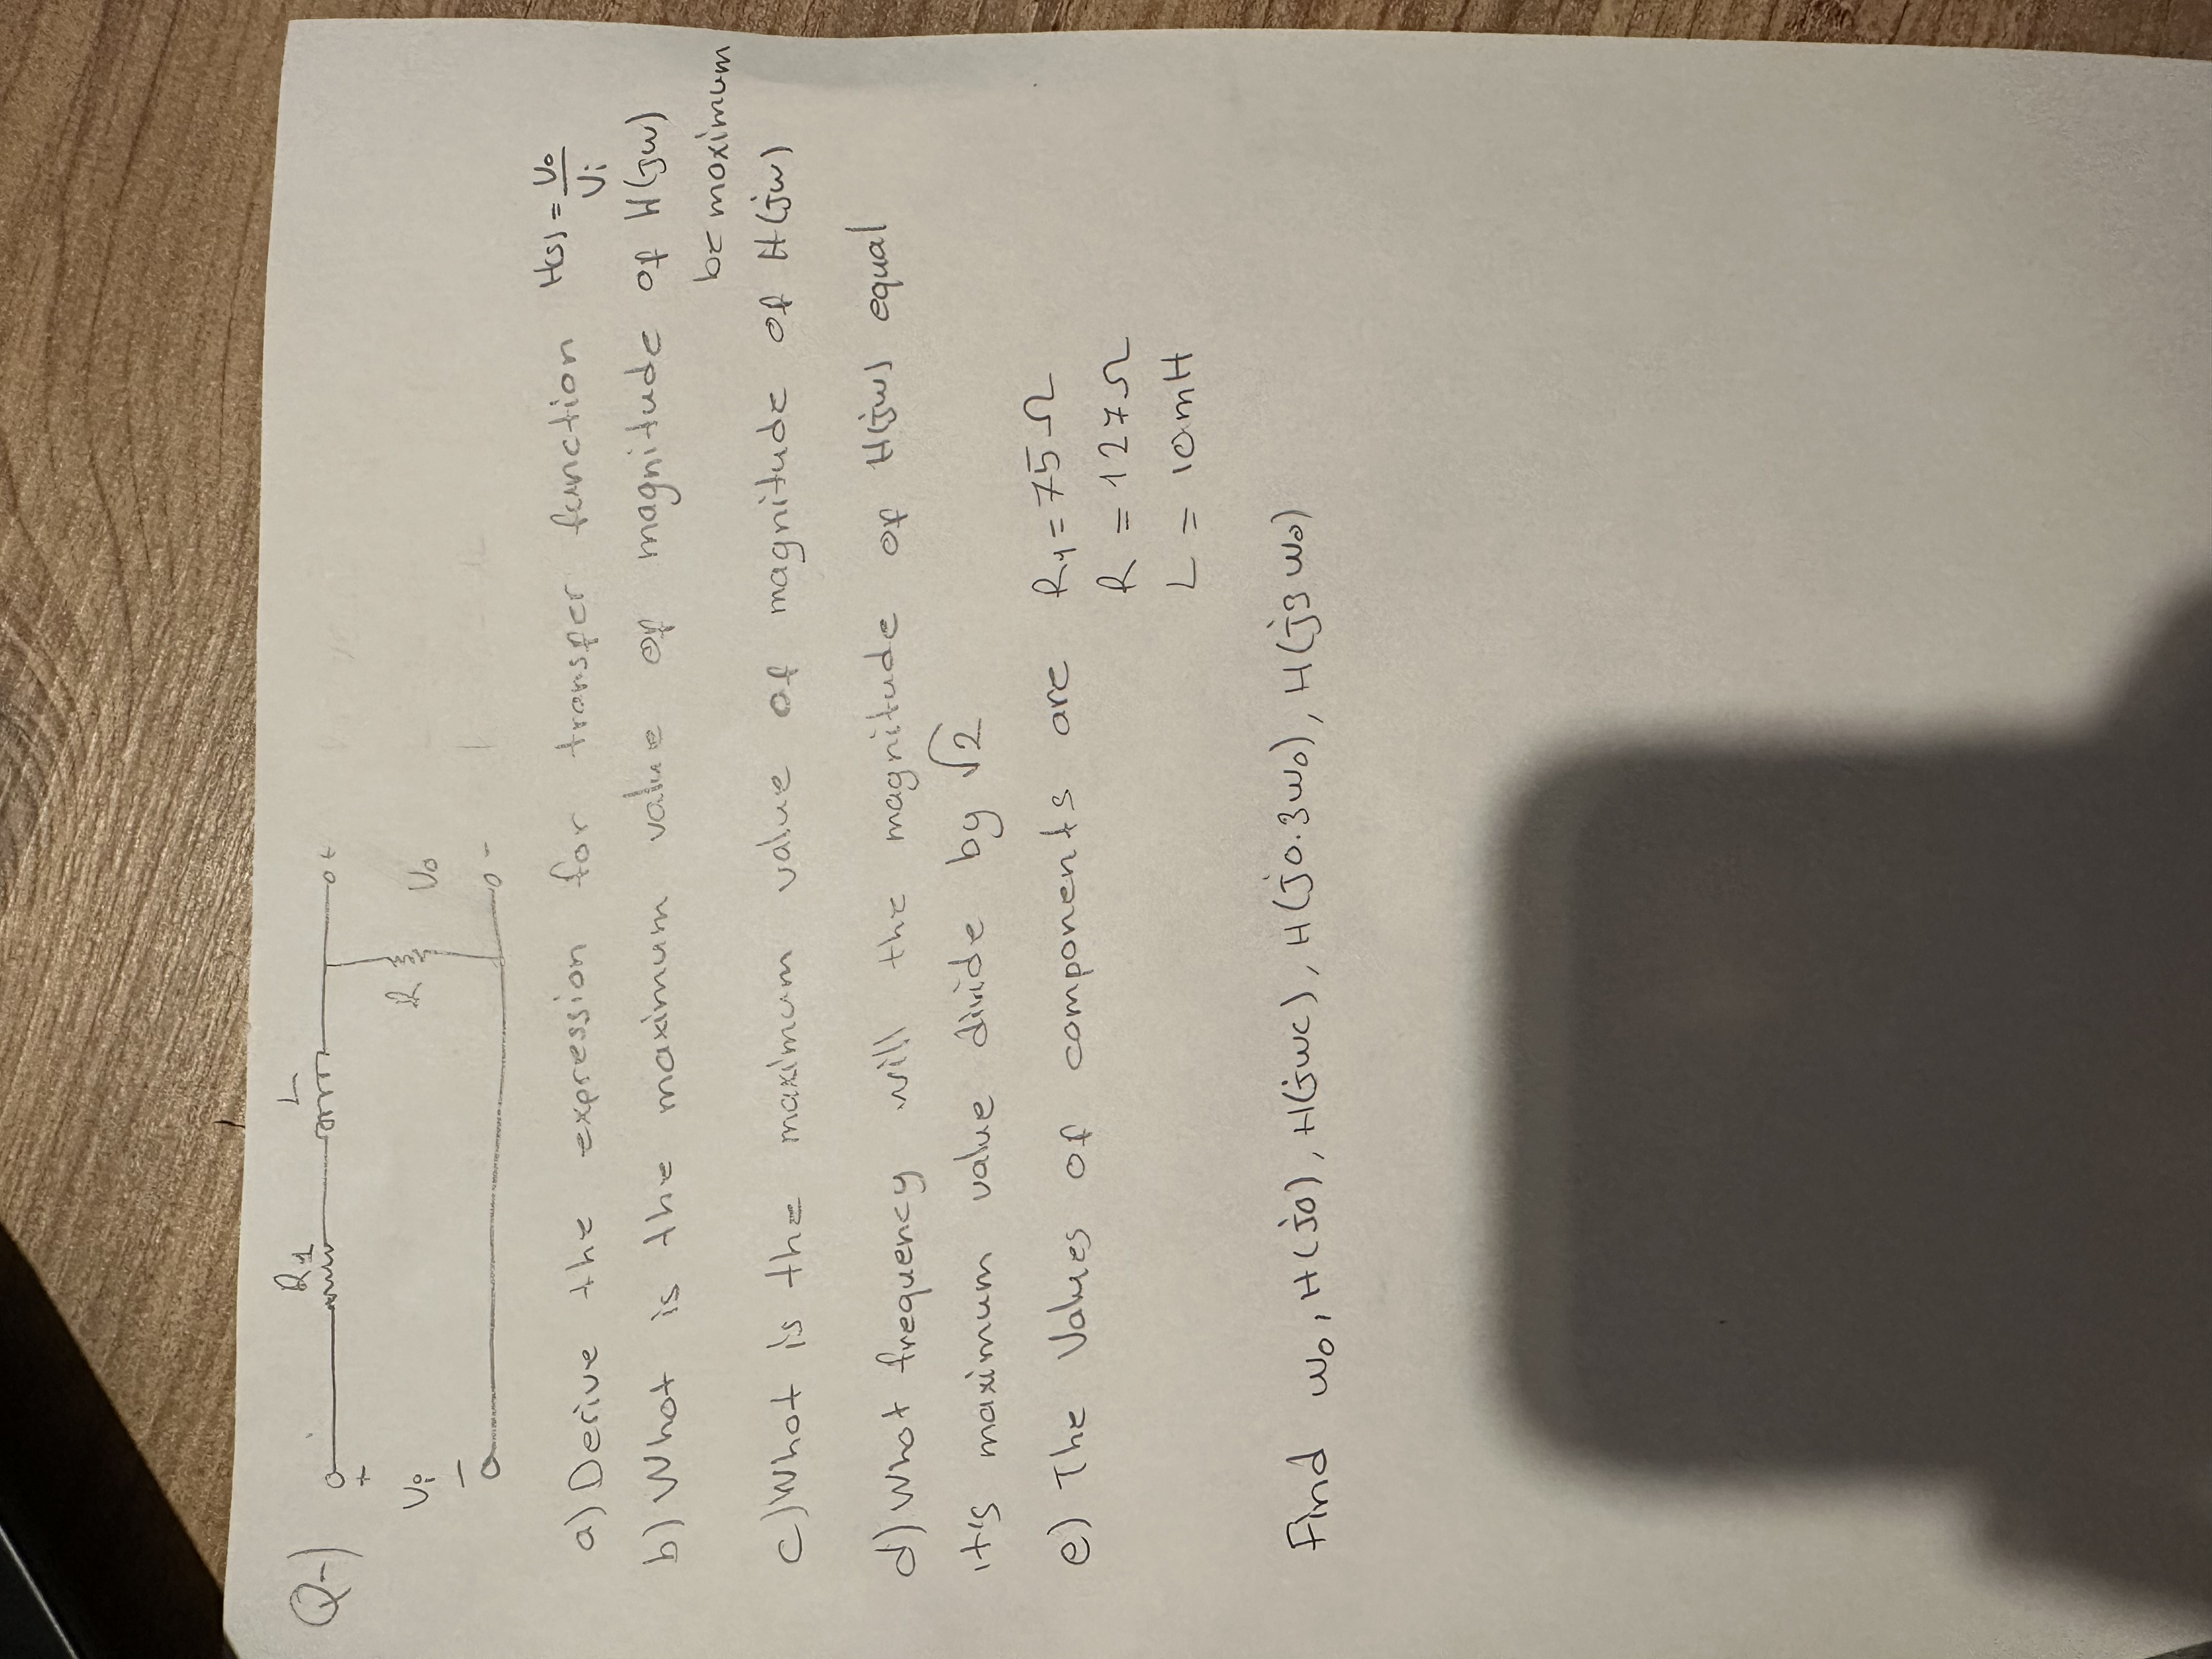 Q-)
R1 L
+ o+
Vi R Vo
- o-
a) Derive the expression for transfer function H(s) = Vo/Vi
b) What is the maximum value of magnitude of H(jw)
be maximum
c) What is the maximum value of magnitude of H(jw)
d) What frequency will the magnitude of H(jw) equal
its maximum value divide by √2
e) The values of components are R1 = 75Ω
R = 127Ω
L = 10mH
Find w0, H(j0), H(jwc), H(j0.3w0), H(j3w0)